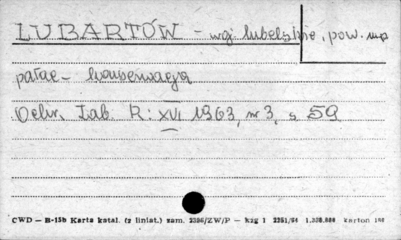 LUBARTÓW - woj. lubelskie, pow. mp
pałac - konserwacja
Ochr. Zab. R: XVI 1963, nr 3, s. 59
CWD — B-15b Karta katal. (z liniat.) zam. 2386/ZW/P — Kzg 1 2251/54 1,320.000 karton 180